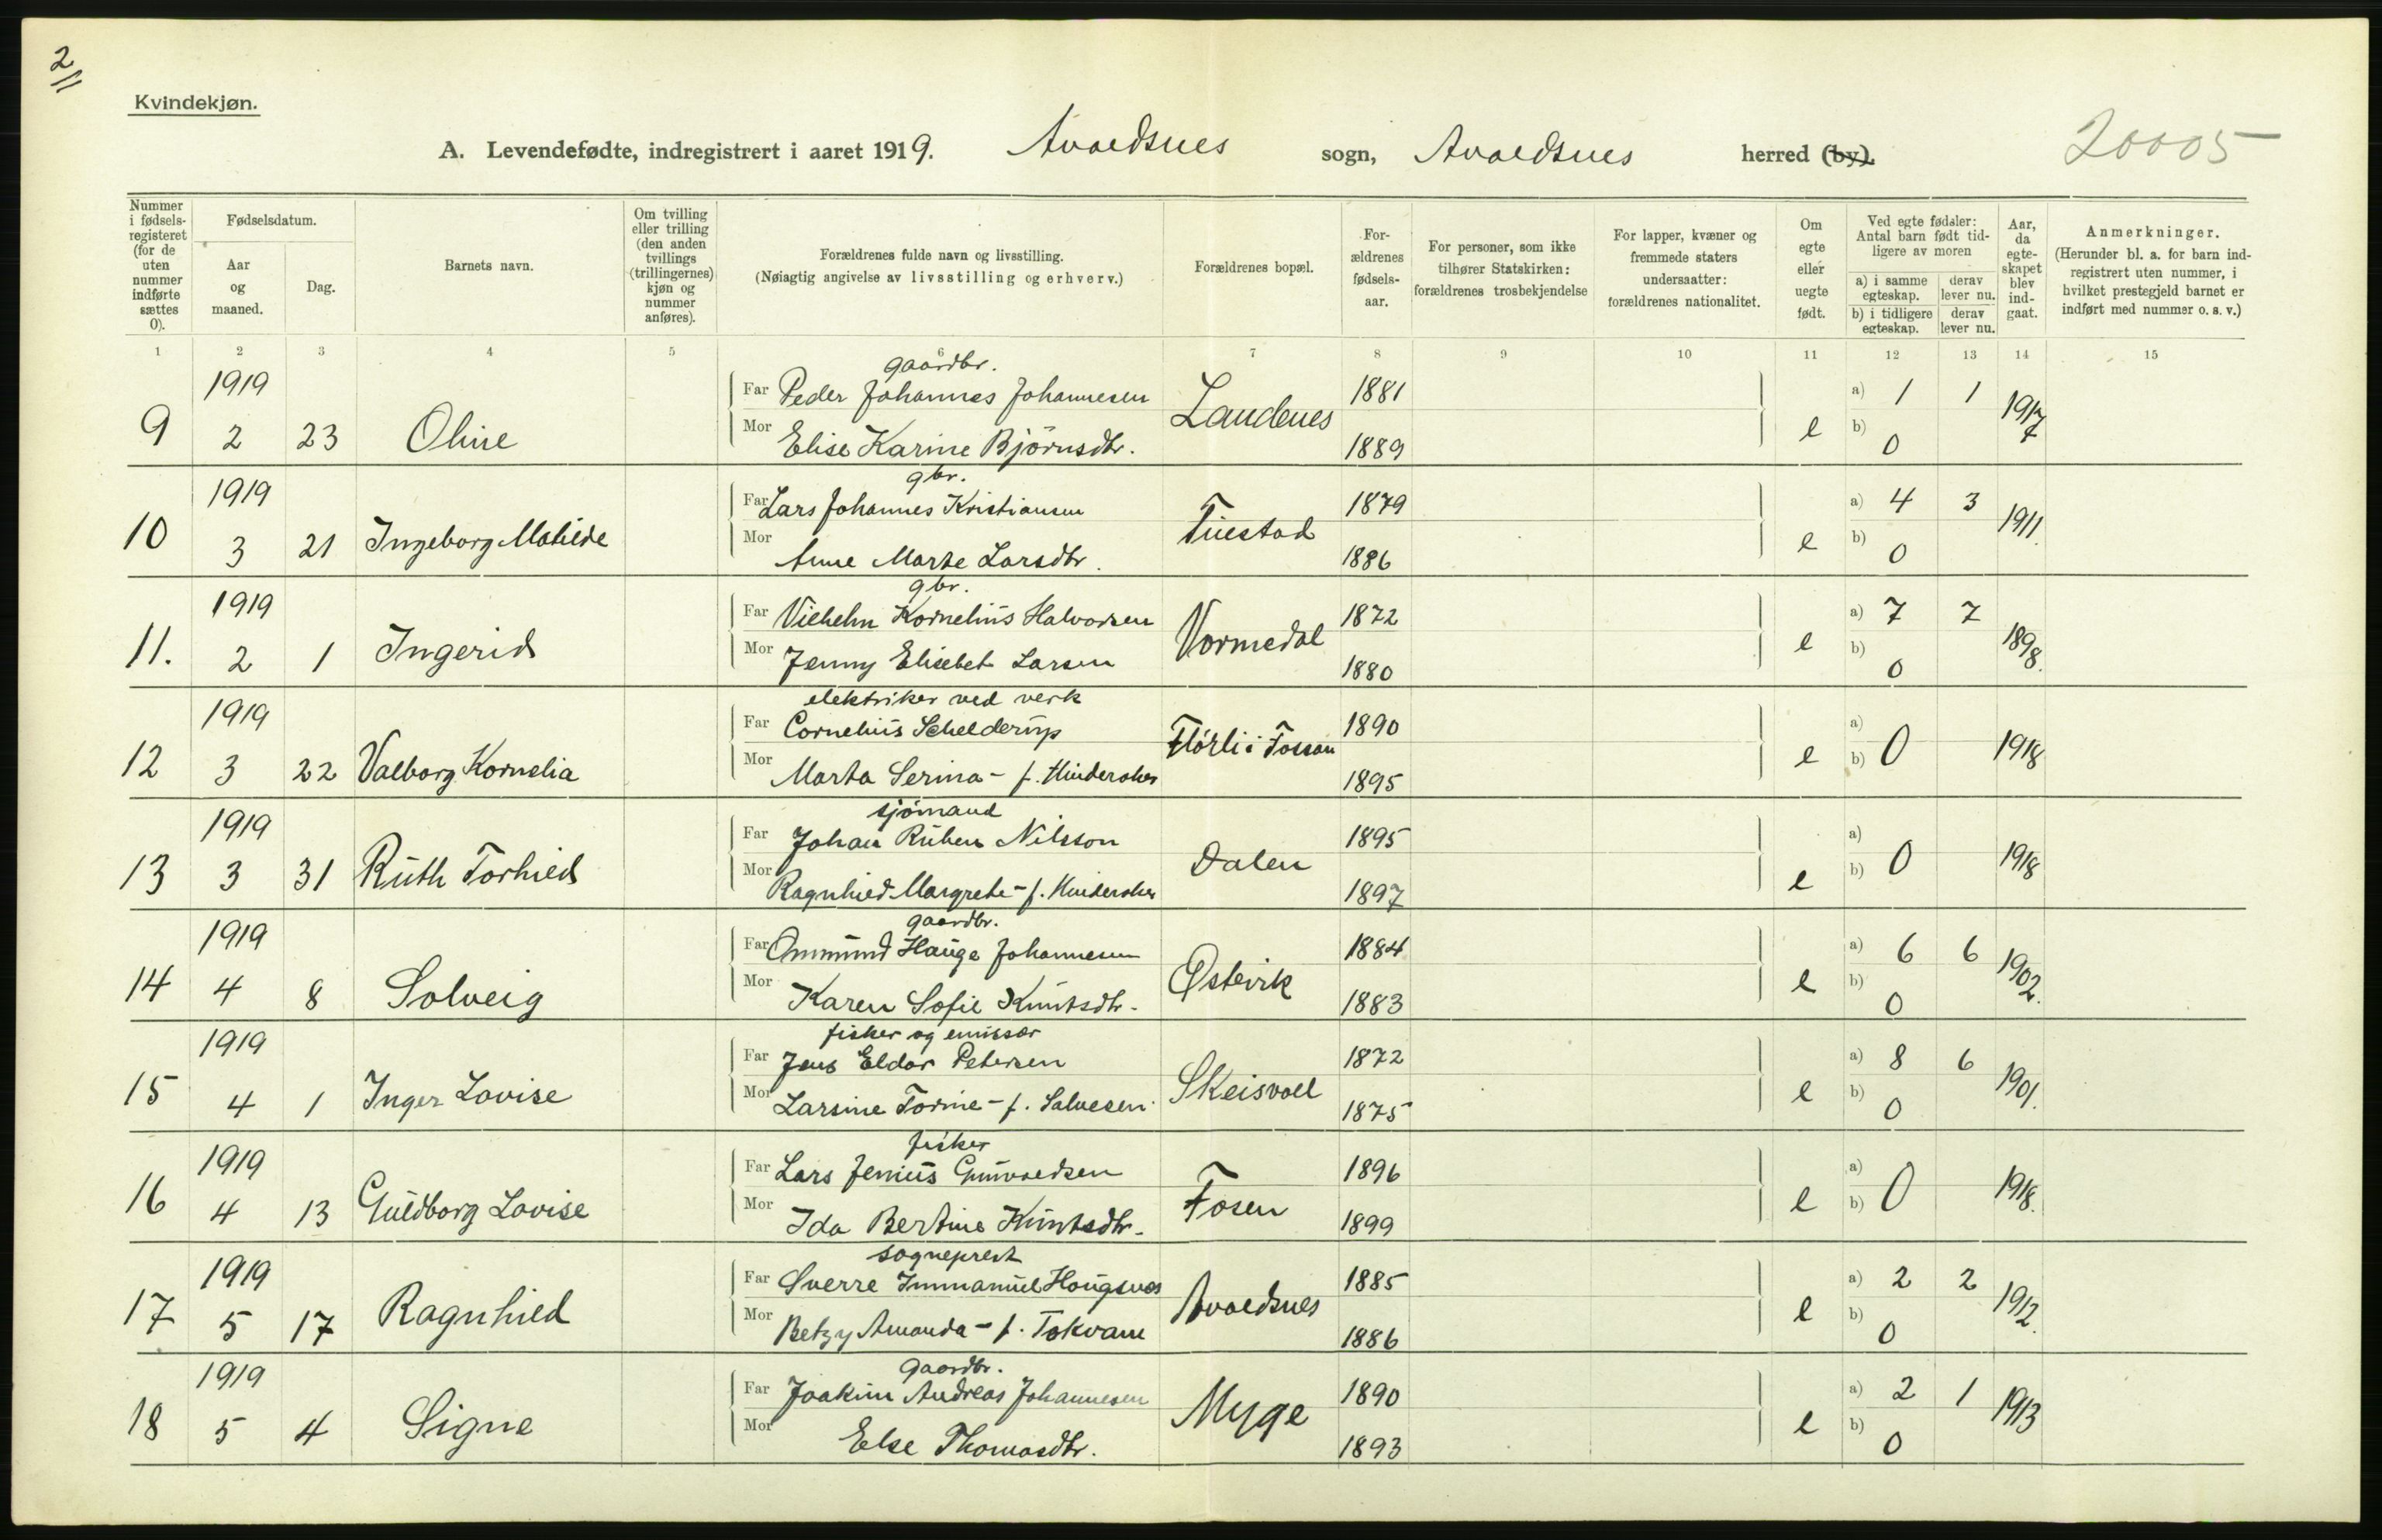 2/11
Kvindekjøn.
A. Levendefødte, indregistrert i aaret 1919. Avaldsnes sogn, Avaldsnes herred (by). 20005
Nummer i fødselsregisteret (for de uten nummer indførte sættes 0).
Fødselsdatum.
Aar og maaned.
Dag.
Barnets navn.
Om tvilling eller trilling (den anden tvillings (trillingernes) kjøn og nummer anføres).
Forældrenes fulde navn og livsstilling.
(Nøiagtig angivelse av livsstilling og erhverv.)
Forældrenes bopæl.
Forældrenes fødselsaar.
For personer, som ikke tilhører Statskirken: forældrenes trosbekjendelse
For lapper, kvæner og fremmede staters undersaatter: forældrenes nationalitet.
Om egte eller uegte født.
Ved egte fødsler: Antal barn født tidligere av moren
a) i samme egteskap. derav lever nu.
b) i tidligere egteskap. derav lever nu.
Aar, da egteskapet blev indgaat.
Anmerkninger.
(Herunder bl. a. for barn indregistrert uten nummer, i hvilket prestegjeld barnet er indført med nummer o. s. v.)
1 2 3 4 5 6 7 8 9 10 11 12 13 14 15
gaardbr.
1919 Far Peder Johannes Johannesen 1881 a) 1 1
9 2 23 Oline Mor Elise Karine Björnsdtr. Landenes 1889 e b) 0 1917
gbr.
1919 Far Lars Johannes Kristiansen 1879 a) 4 3
10 3 21 Ingeborg Matilde Mor Anne Marte Larsdtr. Tuestad 1886 e b) 0 1911
gbr.
1919 Far Vilhelm Kornelius Halvorsen 1872 a) 7 7
11. 2 1 Ingerid Mor Jenny Elisebet Larsen Vormedal 1880 e b) 0 1898.
elektriker ved verk
1919 Far Cornelius Schelderup 1890 a)
12 3 22 Valborg Kornelia Mor Marta Serina - f. Flörli i Fossan 1895 e b) 0 1918
sjömand
1919 Far Johan Ruben Nilsson 1895 a)
13 3 31 Ruth Torhild Mor Ragnhild Margrete - f. Dalen 1897 e b) 0 1918
gaardbr.
1919 Far Ommund Hauge Johannesen 1884 a) 6 6
14 4 8 Solveig Mor Karen Sofie Knutsdtr. Østevik 1883 e b) 0 1902.
fisker og emissær
1919 Far Jens Eldar Petersen 1872 a) 8 6
15 4 1 Inger Lovise Mor Larsine Torine - f. Salvesen. Skeisvoll 1875 e b) 0 1901.
fisker
1919 Far Lars Jenius Gunvaldsen 1896 a)
16 4 13 Guldborg Lovise Mor Ida Bertine Knutsdtr. Fosen 1899 e b) 0 1918.
sogneprest
1919 Far Sverre Immanuel Hougsnæs 1885 a) 2 2
17 5 17 Ragnhild Mor Betzy Amanda - f. Tokvam Avaldsnes 1886 e b) 0 1912.
gaardbr.
1919 Far Joakim Andreas Johannesen 1890 a) 2 1
18 5 4 Signe Mor Else Thomasdtr. Myge 1893 e b) 0 1913